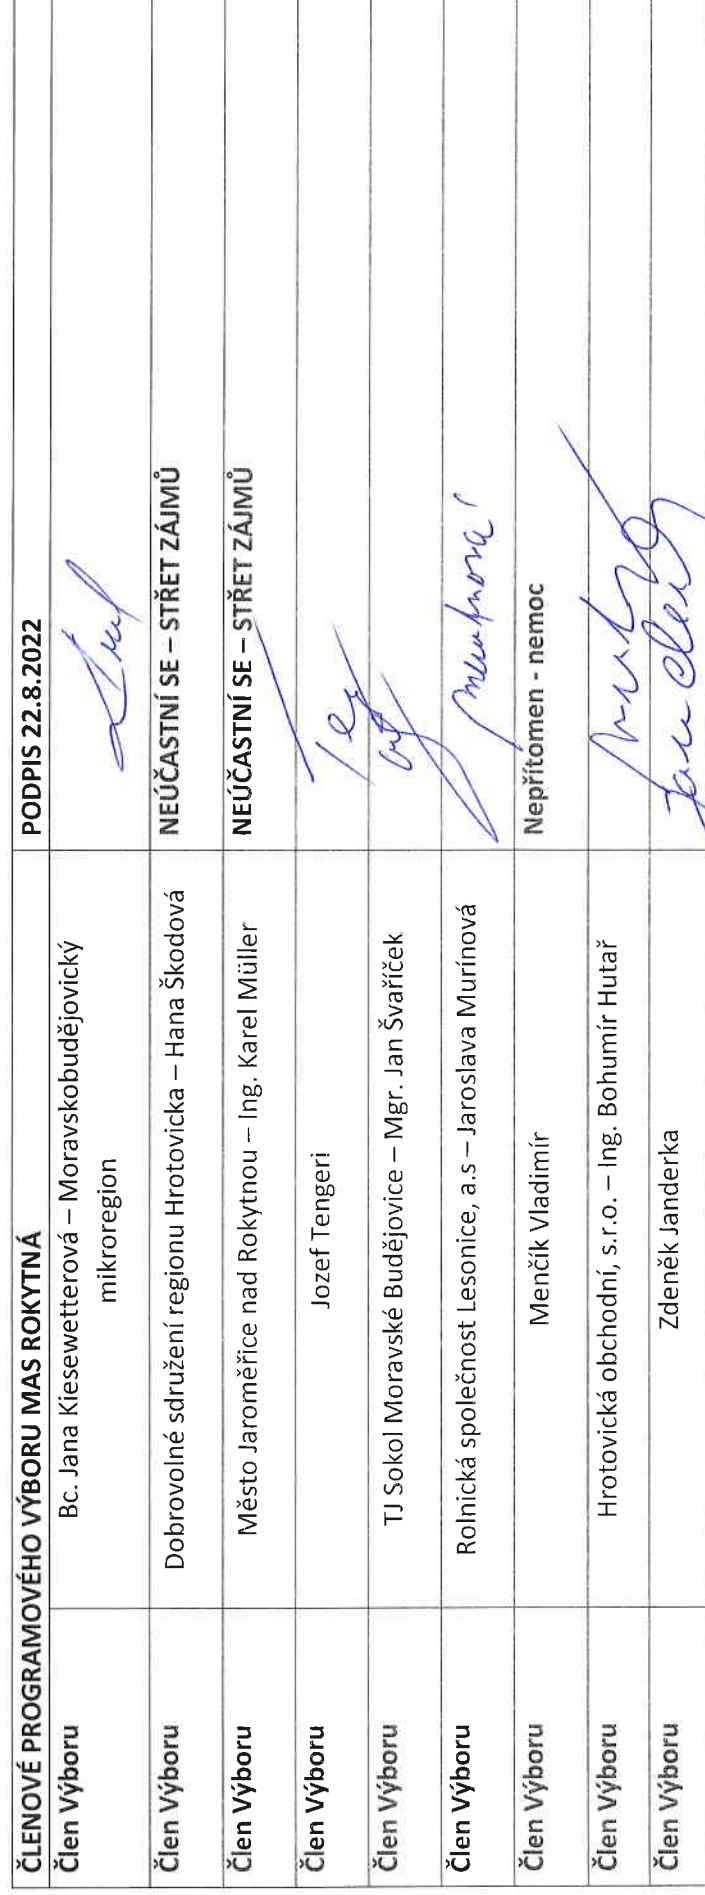 ČLENOVÉ PROGRAMOVÉHO VÝBORU MAS ROKYTNÁ PODPIS 22.8.2022
Člen Výboru Bc. Jana Kiesewetterová – Moravskobudějovický
mikroregion
Člen Výboru Dobrovolné sdružení regionu Hrotovicka – Hana Škodová NEÚČASTNÍ SE – STŘET ZÁJMŮ
Člen Výboru Město Jaroměřice nad Rokytnou – Ing. Karel Müller NEÚČASTNÍ SE – STŘET ZÁJMŮ
Člen Výboru Jozef Tengeri
Člen Výboru TJ Sokol Moravské Budějovice – Mgr. Jan Švaříček
Člen Výboru Rolnická společnost Lesonice, a.s – Jaroslava Murínová
Člen Výboru Menčík Vladimír Nepřítomen - nemoc
Člen Výboru Hrotovická obchodní, s.r.o. – Ing. Bohumír Hutař
Člen Výboru Zdeněk Janderka